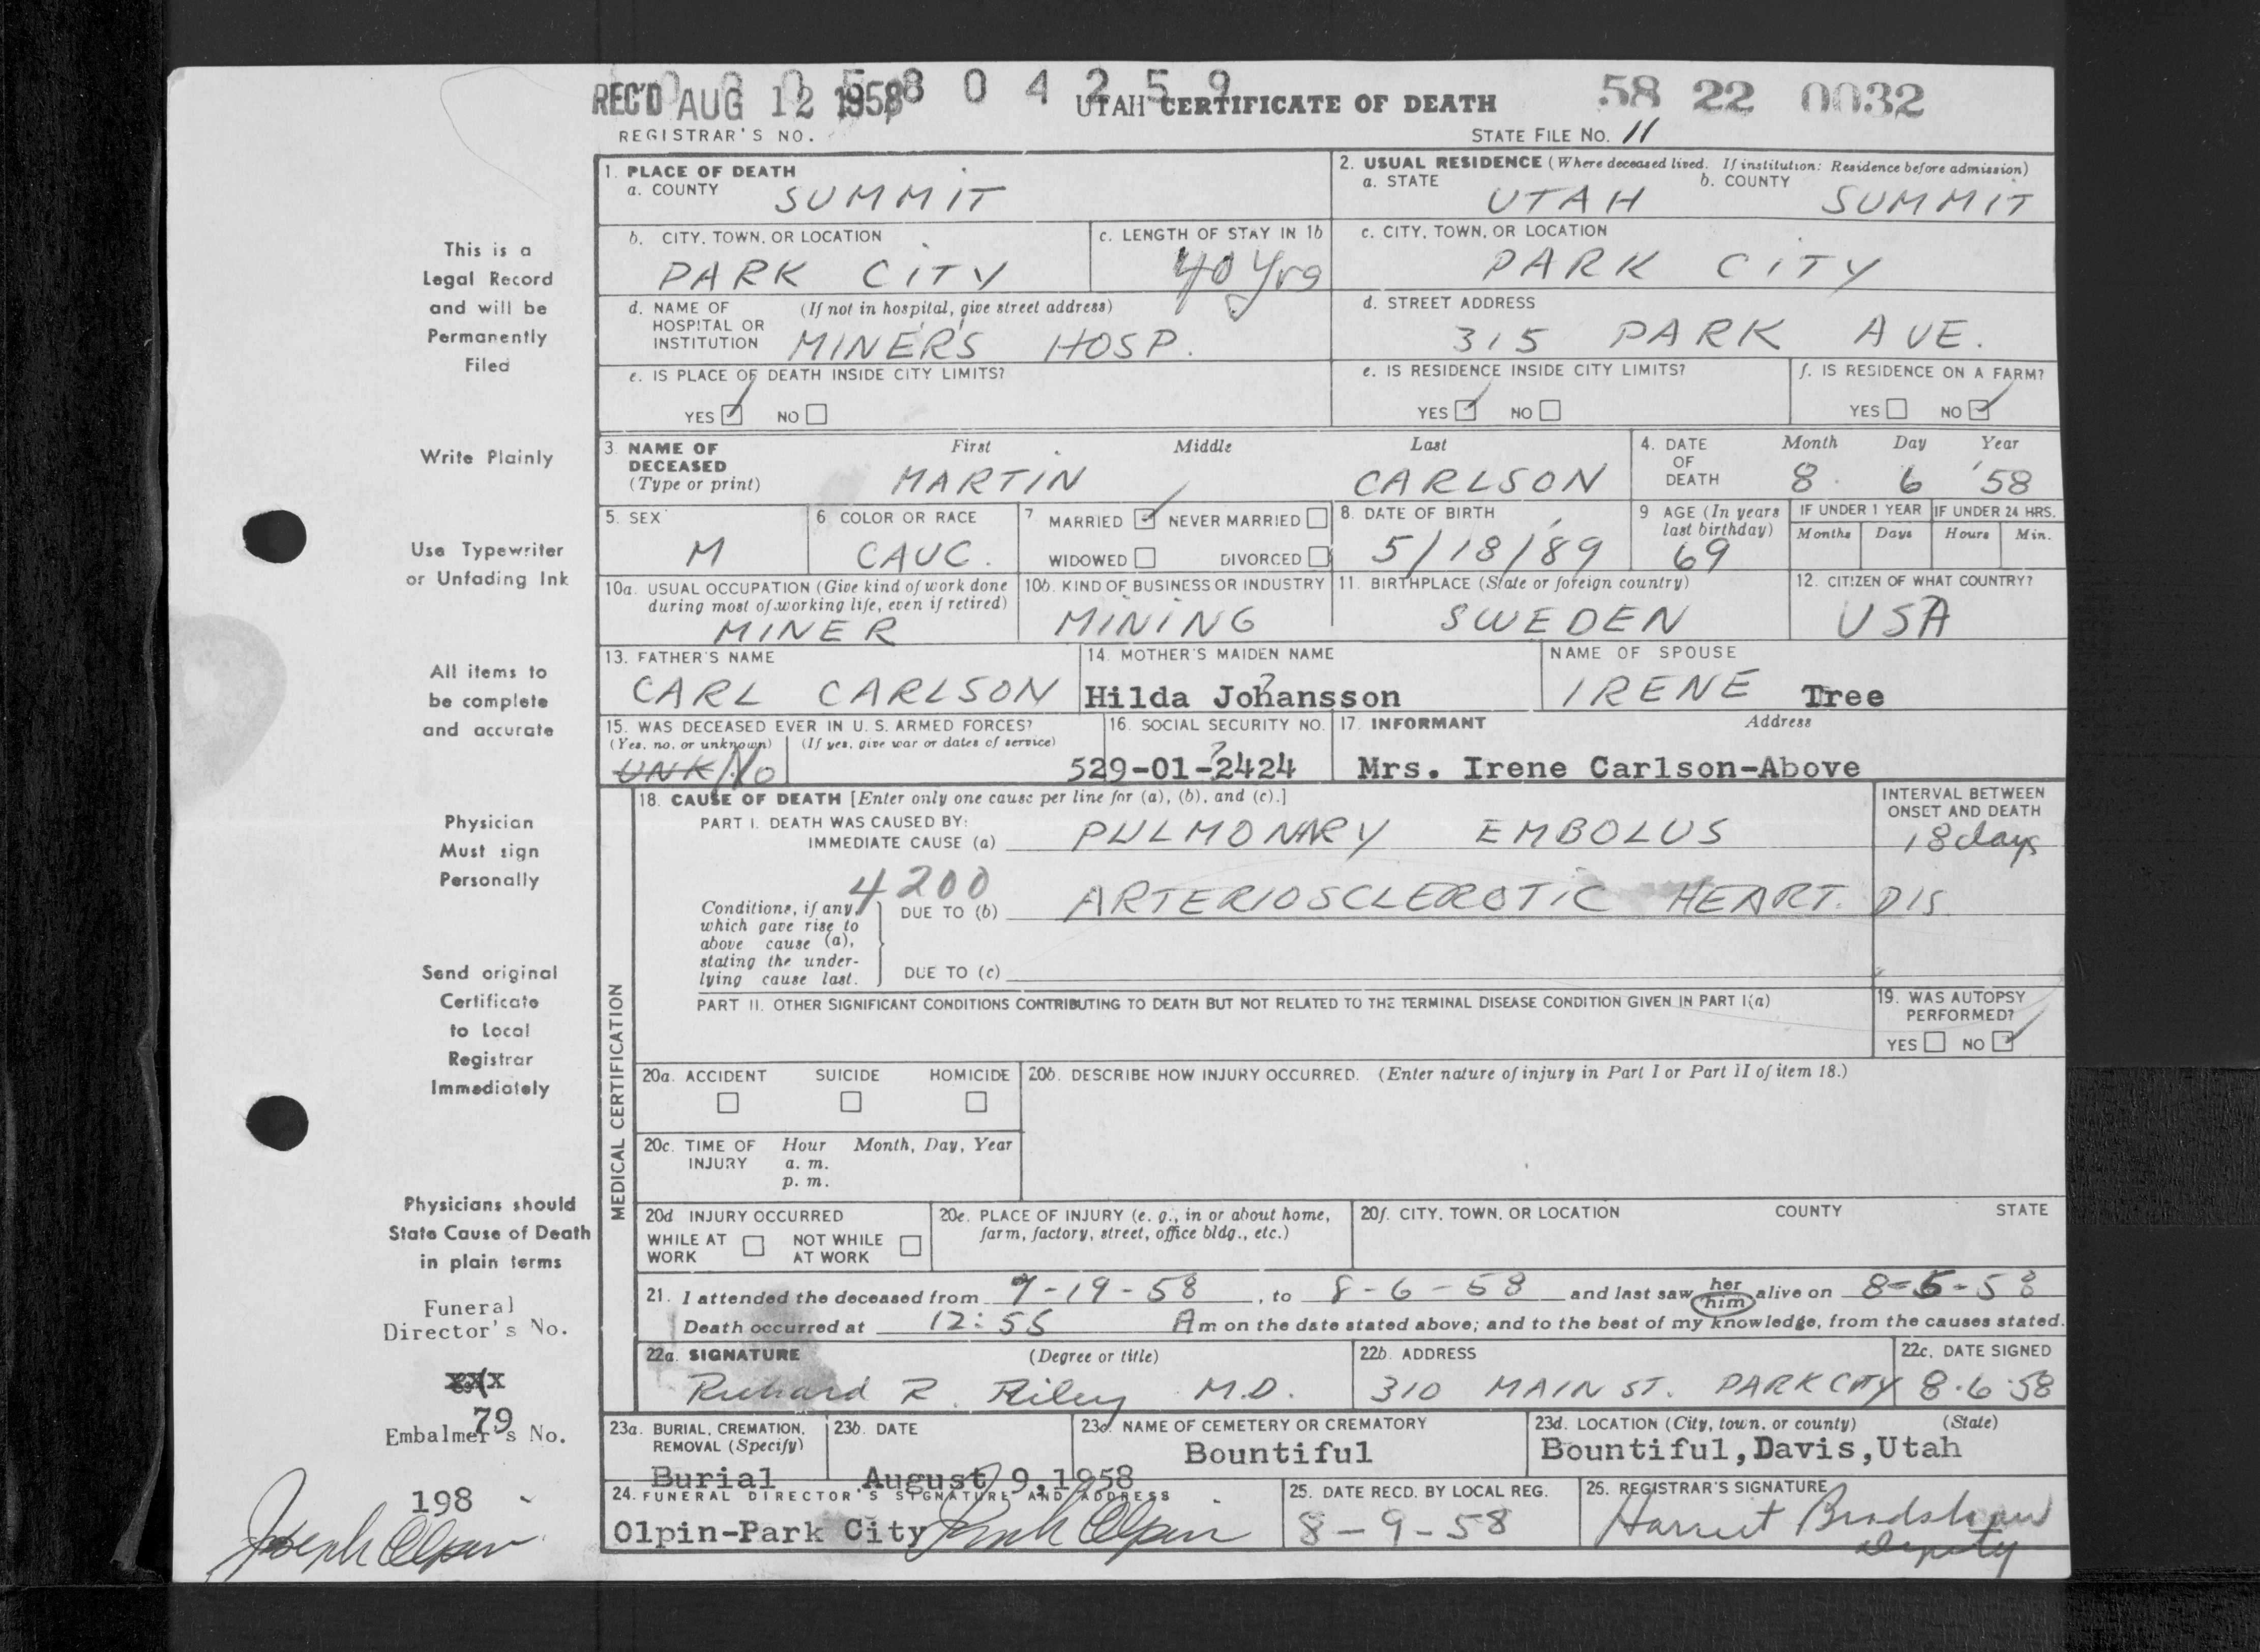 REC'D AUG 12 1958 8 0 4 2 5 9 UTAH CERTIFICATE OF DEATH 58 22 0032
REGISTRAR'S NO. STATE FILE No. 11
1. PLACE OF DEATH
a. COUNTY SUMMIT
2. USUAL RESIDENCE (Where deceased lived. If institution: Residence before admission)
a. STATE UTAH b. COUNTY SUMMIT
b. CITY, TOWN, OR LOCATION PARK CITY
c. LENGTH OF STAY IN 1b 40 Yrs
c. CITY, TOWN, OR LOCATION PARK CITY
d. NAME OF HOSPITAL OR INSTITUTION (If not in hospital, give street address) MINER'S HOSP.
d. STREET ADDRESS 315 PARK AVE.
e. IS PLACE OF DEATH INSIDE CITY LIMITS?
YES NO
e. IS RESIDENCE INSIDE CITY LIMITS?
YES NO
f. IS RESIDENCE ON A FARM?
YES NO
3. NAME OF DECEASED (Type or print) First Middle Last
MARTIN CARLSON
4. DATE OF DEATH Month Day Year
8 6 '58
5. SEX M
6 COLOR OR RACE CAUC.
7 MARRIED NEVER MARRIED
WIDOWED DIVORCED
8. DATE OF BIRTH 5/18/89
9 AGE (In years last birthday) 69
IF UNDER 1 YEAR IF UNDER 24 HRS.
Months Days Hours Min.
10a. USUAL OCCUPATION (Give kind of work done during most of working life, even if retired) MINER
10b. KIND OF BUSINESS OR INDUSTRY MINING
11. BIRTHPLACE (State or foreign country) SWEDEN
12. CITIZEN OF WHAT COUNTRY? USA
13. FATHER'S NAME CARL CARLSON
14. MOTHER'S MAIDEN NAME ? Hilda Johansson
NAME OF SPOUSE IRENE Tree
15. WAS DECEASED EVER IN U. S. ARMED FORCES?
(Yes, no. or unknown) (If yes, give war or dates of service)
UNK No
16. SOCIAL SECURITY NO. ? 529-01-2424
17. INFORMANT Address
Mrs. Irene Carlson-Above
MEDICAL CERTIFICATION
18. CAUSE OF DEATH [Enter only one cause per line for (a), (b), and (c).]
INTERVAL BETWEEN ONSET AND DEATH
PART I. DEATH WAS CAUSED BY:
IMMEDIATE CAUSE (a) PULMONARY EMBOLUS 18 days
4200
Conditions, if any, which gave rise to above cause (a), stating the underlying cause last.
DUE TO (b) ARTERIOSCLEROTIC HEART. DIS
DUE TO (c)
PART II. OTHER SIGNIFICANT CONDITIONS CONTRIBUTING TO DEATH BUT NOT RELATED TO THE TERMINAL DISEASE CONDITION GIVEN IN PART I(a)
19. WAS AUTOPSY PERFORMED?
YES NO
20a. ACCIDENT SUICIDE HOMICIDE
20b. DESCRIBE HOW INJURY OCCURRED. (Enter nature of injury in Part I or Part II of item 18.)
20c. TIME OF INJURY Hour Month, Day, Year
a. m.
p. m.
20d INJURY OCCURRED
WHILE AT WORK NOT WHILE AT WORK
20e. PLACE OF INJURY (e. g., in or about home, farm, factory, street, office bldg., etc.)
20f. CITY, TOWN, OR LOCATION COUNTY STATE
21. I attended the deceased from 7-19-58, to 8-6-58 and last saw her him alive on 8-5-58
Death occurred at 12:55 Am on the date stated above; and to the best of my knowledge, from the causes stated.
22a. SIGNATURE (Degree or title)
Richard R. Riley M.D.
22b. ADDRESS 310 MAIN ST. PARK CITY
22c. DATE SIGNED 8.6.58
23a. BURIAL, CREMATION, REMOVAL (Specify) Burial
23b. DATE August 9,1958
23c. NAME OF CEMETERY OR CREMATORY Bountiful
23d. LOCATION (City, town, or county) (State)
Bountiful,Davis,Utah
24. FUNERAL DIRECTOR'S SIGNATURE AND ADDRESS
Olpin-Park City Joseph Olpin
25. DATE RECD. BY LOCAL REG. 8-9-58
26. REGISTRAR'S SIGNATURE
Harriet Bradshaw
deputy
This is a
Legal Record
and will be
Permanently
Filed
Write Plainly
Use Typewriter
or Unfading Ink
All items to
be complete
and accurate
Physician
Must sign
Personally
Send original
Certificate
to Local
Registrar
Immediately
Physicians should
State Cause of Death
in plain terms
Funeral
Director's No.
79
Embalmer's No.
198
Joseph Olpin